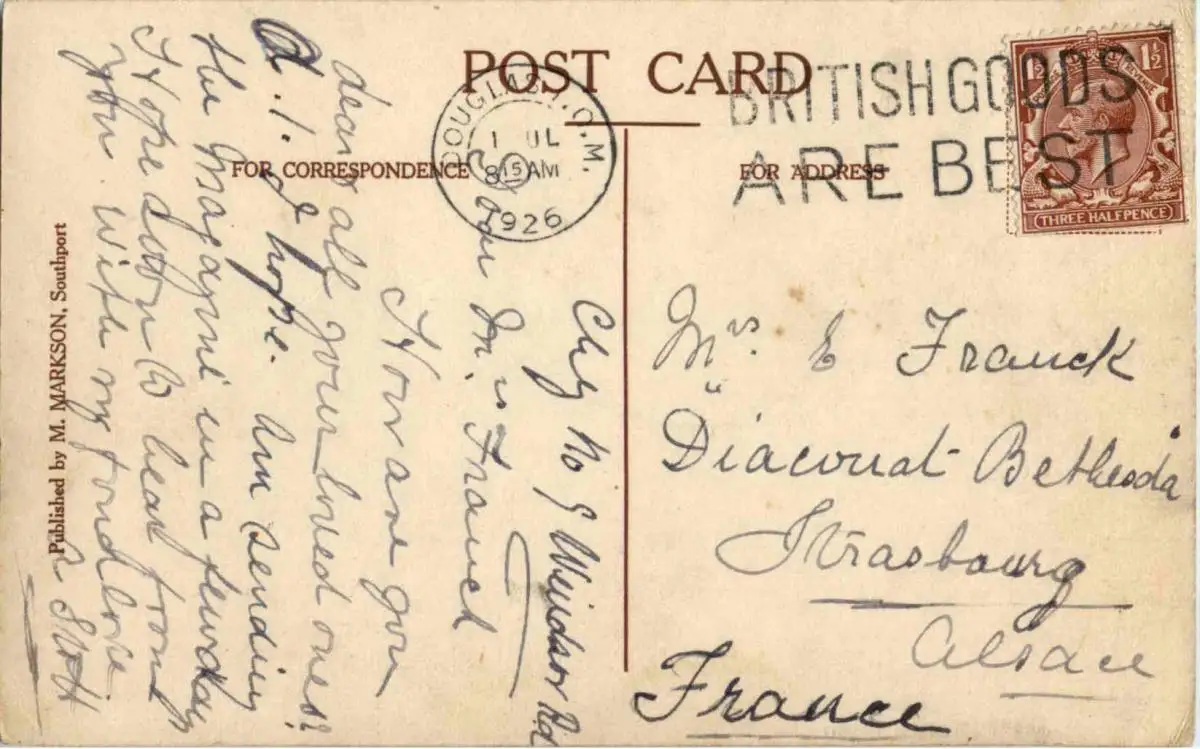 POST CARD
FOR CORRESPONDENCE
FOR ADDRESS
DOUGLAS I.O.M.
1 JL
8 15 AM
1926
BRITISH GOODS
ARE BEST
1½ 1½
THREE HALFPENCE
Published by M. MARKSON, Southport
No 9 Windsor Rd
Dear Mrs Franck
How are you
dear all your loved ones?
A.1. I hope. Am sending
the Magazine in a few days
I Hope soon to hear from
you With my fond love
Mrs. E Franck
Diaconat Bethesda
Strasbourg
Alsace
France